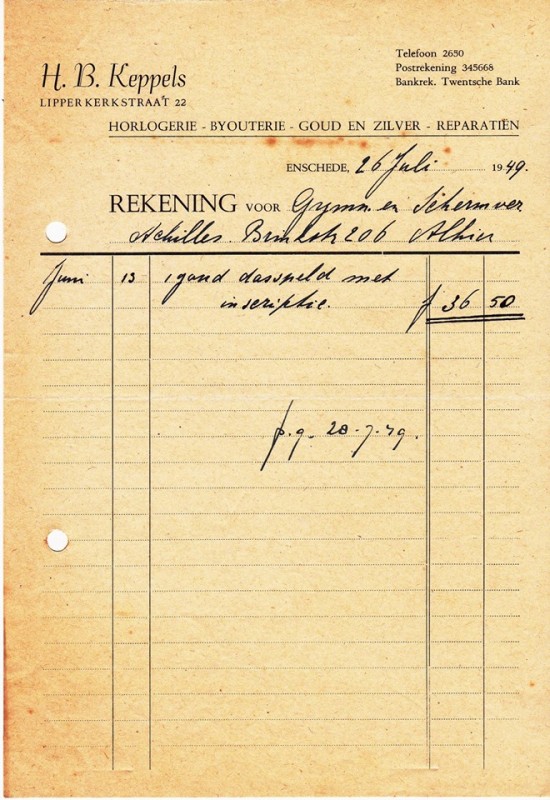 H. B. Keppels
LIPPERKERKSTRAAT 22
Telefoon 2650
Postrekening 345668
Bankrek. Twentsche Bank
HORLOGERIE - BYOUTERIE - GOUD EN ZILVER - REPARATIËN
ENSCHEDE, 26 Juli 1949.
REKENING VOOR Gymn. en Schermver
Achilles. 206
Juni 13 1 goud dasspeld met
inscriptie. f 36 50
p.g. 28-7-49.